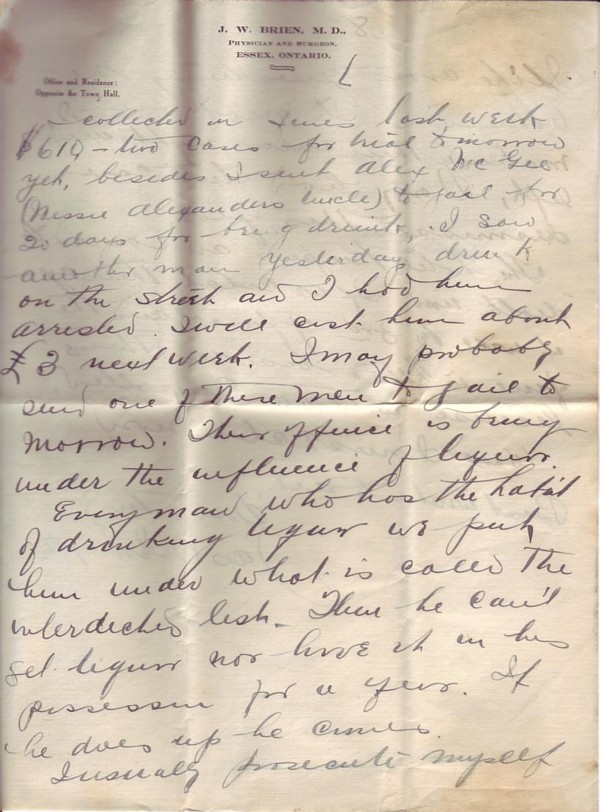 J. W. BRIEN, M. D.,
PHYSICIAN AND SURGEON.
ESSEX, ONTARIO.
Office and Residence:
Opposite the Town Hall.
I collected in fines last week
$610 – two cases for trial tomorrow
yet, besides I sent Alex McGee
(Nessie Alexanders Uncle) to jail for
20 days for being drunk. I saw
another man yesterday drunk
on the street and I had him
arrested. I will cost him about
£3 next week. I may probably
send one of these men to jail to
morrow. Their offence is being
under the influence of liquor.
Every man who has the habit
of drinking liquor we put
him under what is called the
interdicted list. Then he can't
get liquor nor have it in his
possession for a year. If
he does up he comes.
I usually prosecute myself